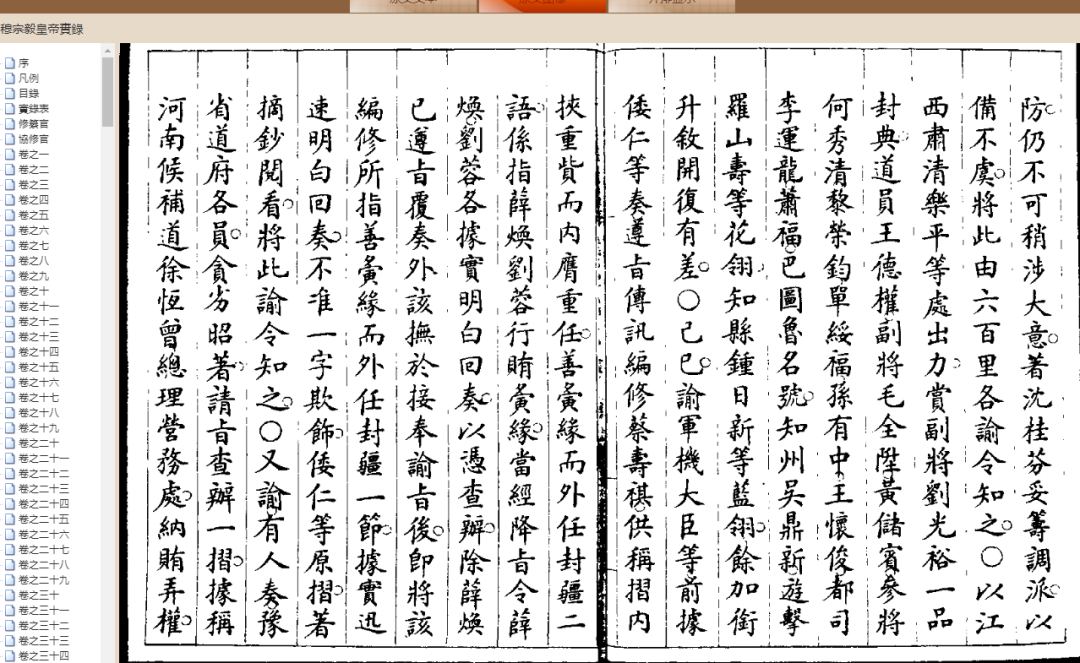 穆宗毅皇帝實錄
序
凡例
目錄
實錄表
修纂官
協修官
卷之一
卷之二
卷之三
卷之四
卷之五
卷之六
卷之七
卷之八
卷之九
卷之十
卷之十一
卷之十二
卷之十三
卷之十四
卷之十五
卷之十六
卷之十七
卷之十八
卷之十九
卷之二十
卷之二十一
卷之二十二
卷之二十三
卷之二十四
卷之二十五
卷之二十六
卷之二十七
卷之二十八
卷之二十九
卷之三十
卷之三十一
卷之三十二
卷之三十三
卷之三十四
防仍不可稍涉大意著沈桂芬妥籌調派以
備不虞將此由六百里各諭令知之〇以江
西肅清樂平等處出力賞副將劉光裕一品
封典道員王德權副將毛全陞黃儲賓參將
何秀清黎榮鈞單綏福孫有中王懷俊都司
李運龍蕭福巴圖魯名號知州吳鼎新遊擊
羅山壽等花翎知縣鍾日新等藍翎餘加銜
升敘開復有差〇己巳諭軍機大臣等前據
倭仁等奏遵旨傳訊編修蔡壽祺供稱摺內
挾重貲而內膺重任善夤緣而外任封疆二
語係指薛煥劉蓉行賄夤緣當經降旨令薛
煥劉蓉各據實明白回奏以憑查辦除薛煥
已遵旨覆奏外該撫於接奉諭旨後即將該
編修所指善夤緣而外任封疆一節據實迅
速明白回奏不准一字欺飾倭仁等原摺著
摘鈔閱看將此諭令知之〇又諭有人奏豫
省道府各員貪劣昭著請旨查辦一摺據稱
河南候補道徐恆曾總理營務處納賄弄權